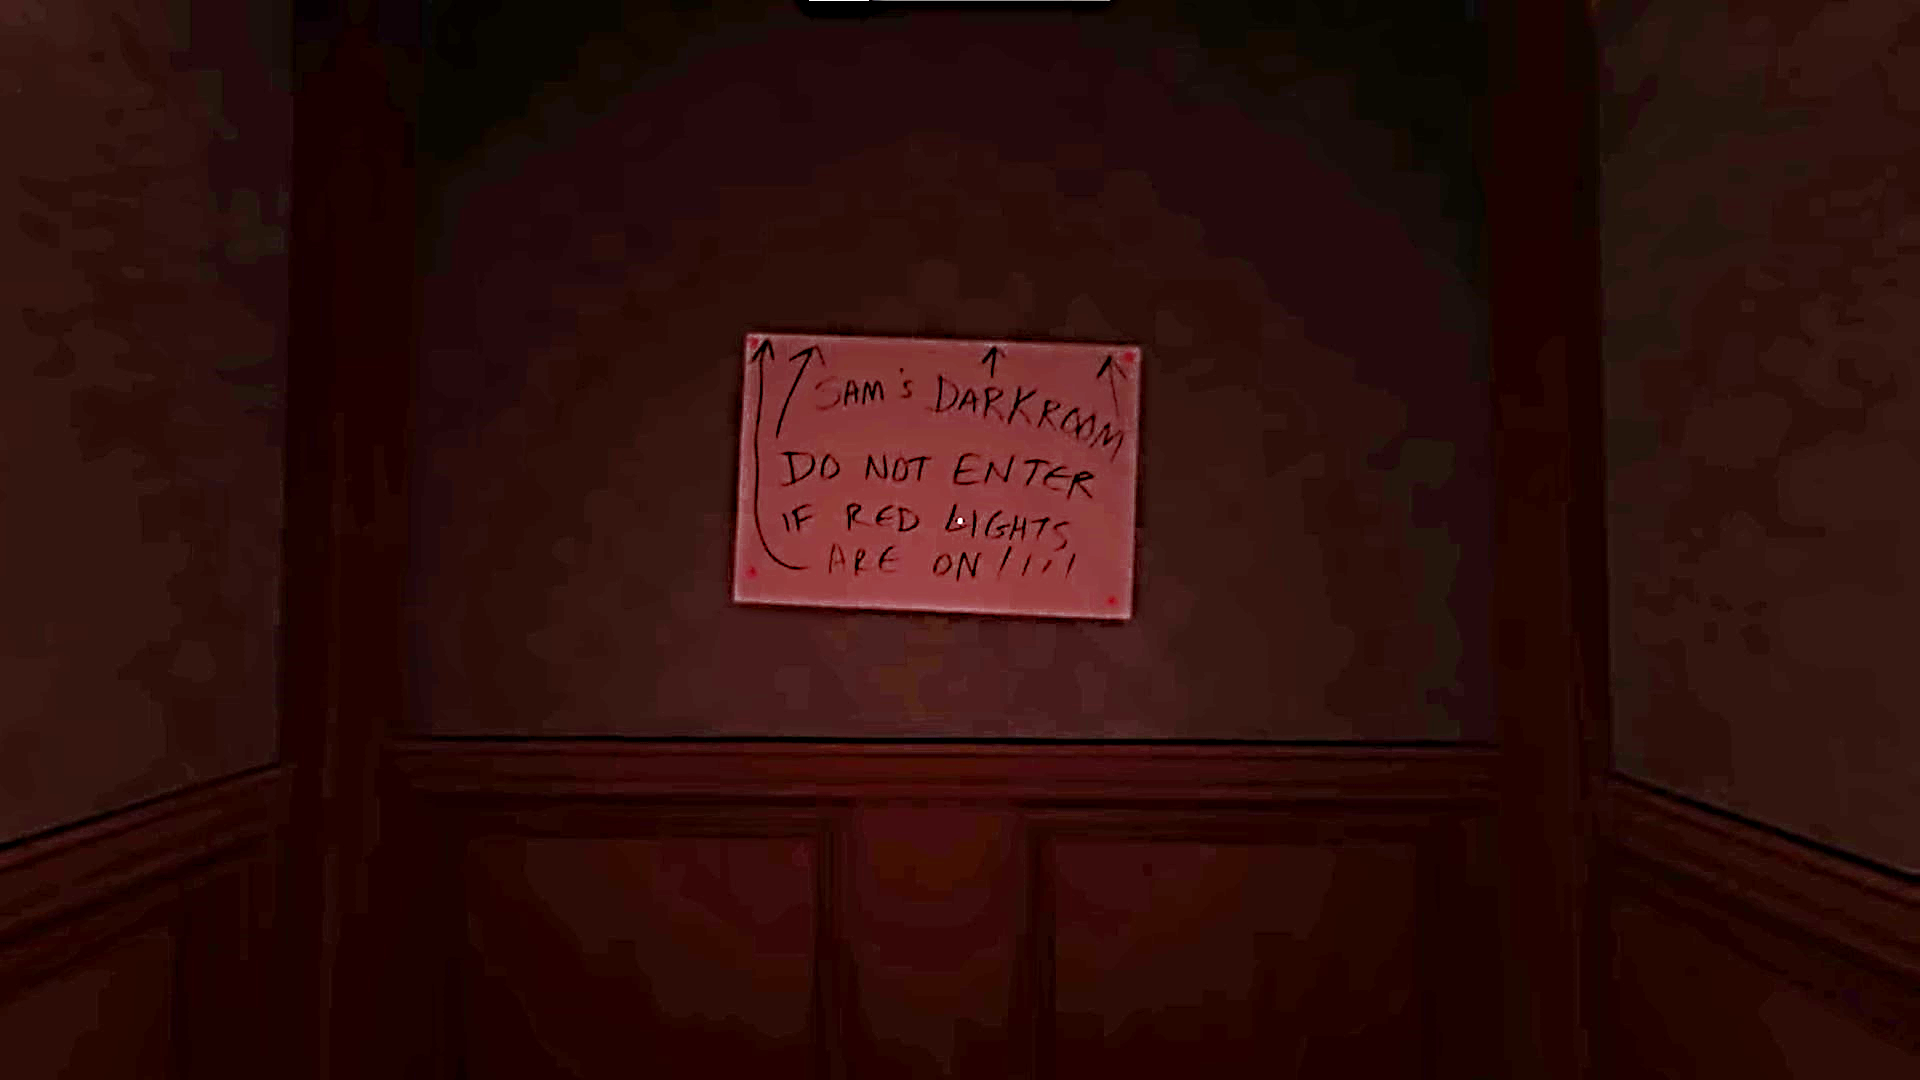 SAM'S DARKROOM
DO NOT ENTER
IF RED LIGHTS
ARE ON!!!!